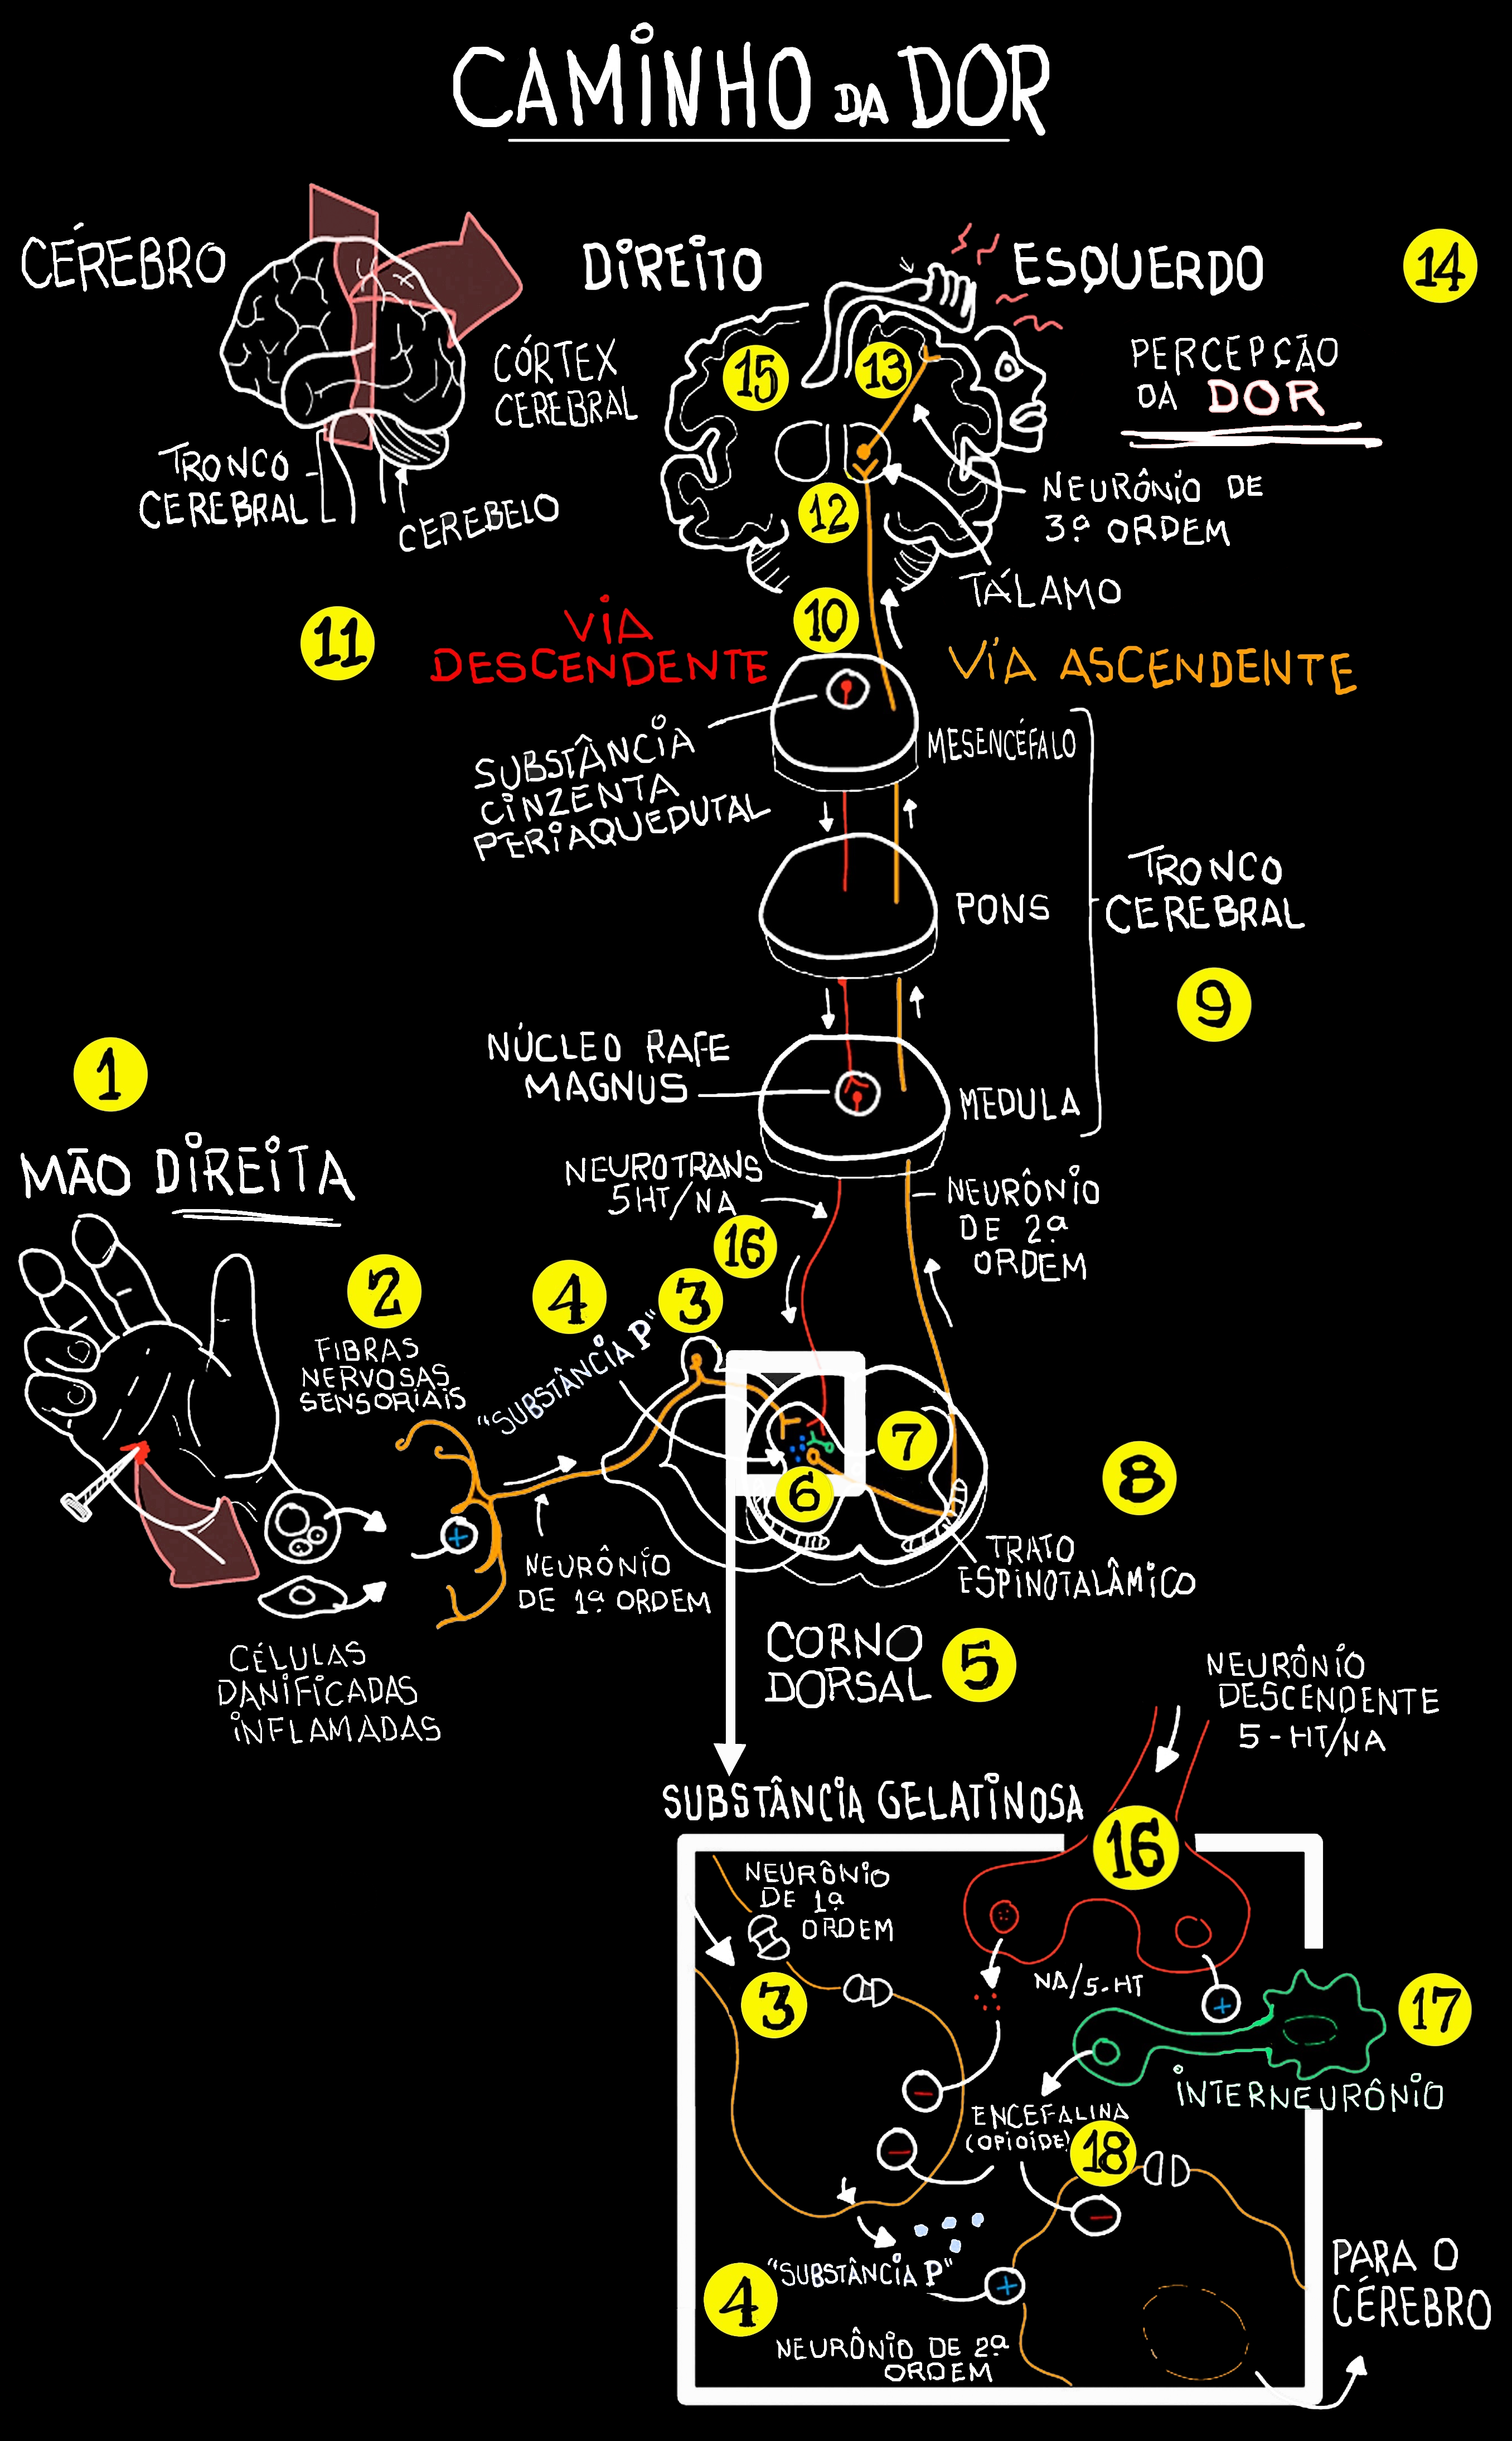 CAMINHO DA DOR
CÉREBRO
DIREITO
ESQUERDO
14
CÓRTEX
CEREBRAL
15
13
PERCEPÇÃO
DA DOR
TRONCO
CEREBRAL
CEREBELO
12
NEURÔNIO DE
3ª ORDEM
TÁLAMO
11
VIA
DESCENDENTE
10
VÍA ASCENDENTE
SUBSTÂNCIA
CINZENTA
PERIAQUEDUTAL
MESENCÉFALO
PONS
TRONCO
CEREBRAL
9
NÚCLEO RAFE
MAGNUS
MEDULA
1
MÃO DIREITA
NEUROTRANS
5HT/NA
16
NEURÔNIO
DE 2ª
ORDEM
2
FIBRAS
NERVOSAS
SENSORIAIS
4
"SUBSTÂNCIA P"
3
7
6
8
+
NEURÔNIO
DE 1ª ORDEM
TRATO
ESPINOTALÂMICO
CÉLULAS
DANIFICADAS
INFLAMADAS
CORNO
DORSAL
5
NEURÔNIO
DESCENDENTE
5-HT/NA
SUBSTÂNCIA GELATINOSA
16
NEURÔNIO
DE 1ª
ORDEM
3
NA/5-HT
+
17
INTERNEURÔNIO
-
ENCEFALINA
(OPIOÍDE)
18
-
-
4
"SUBSTÂNCIA P"
+
NEURÔNIO DE 2ª
ORDEM
PARA O
CÉREBRO